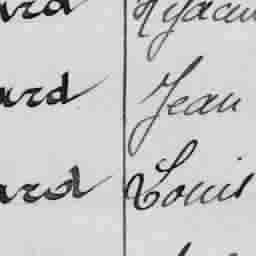 ard Hyacin
ard Jean
ard Louis